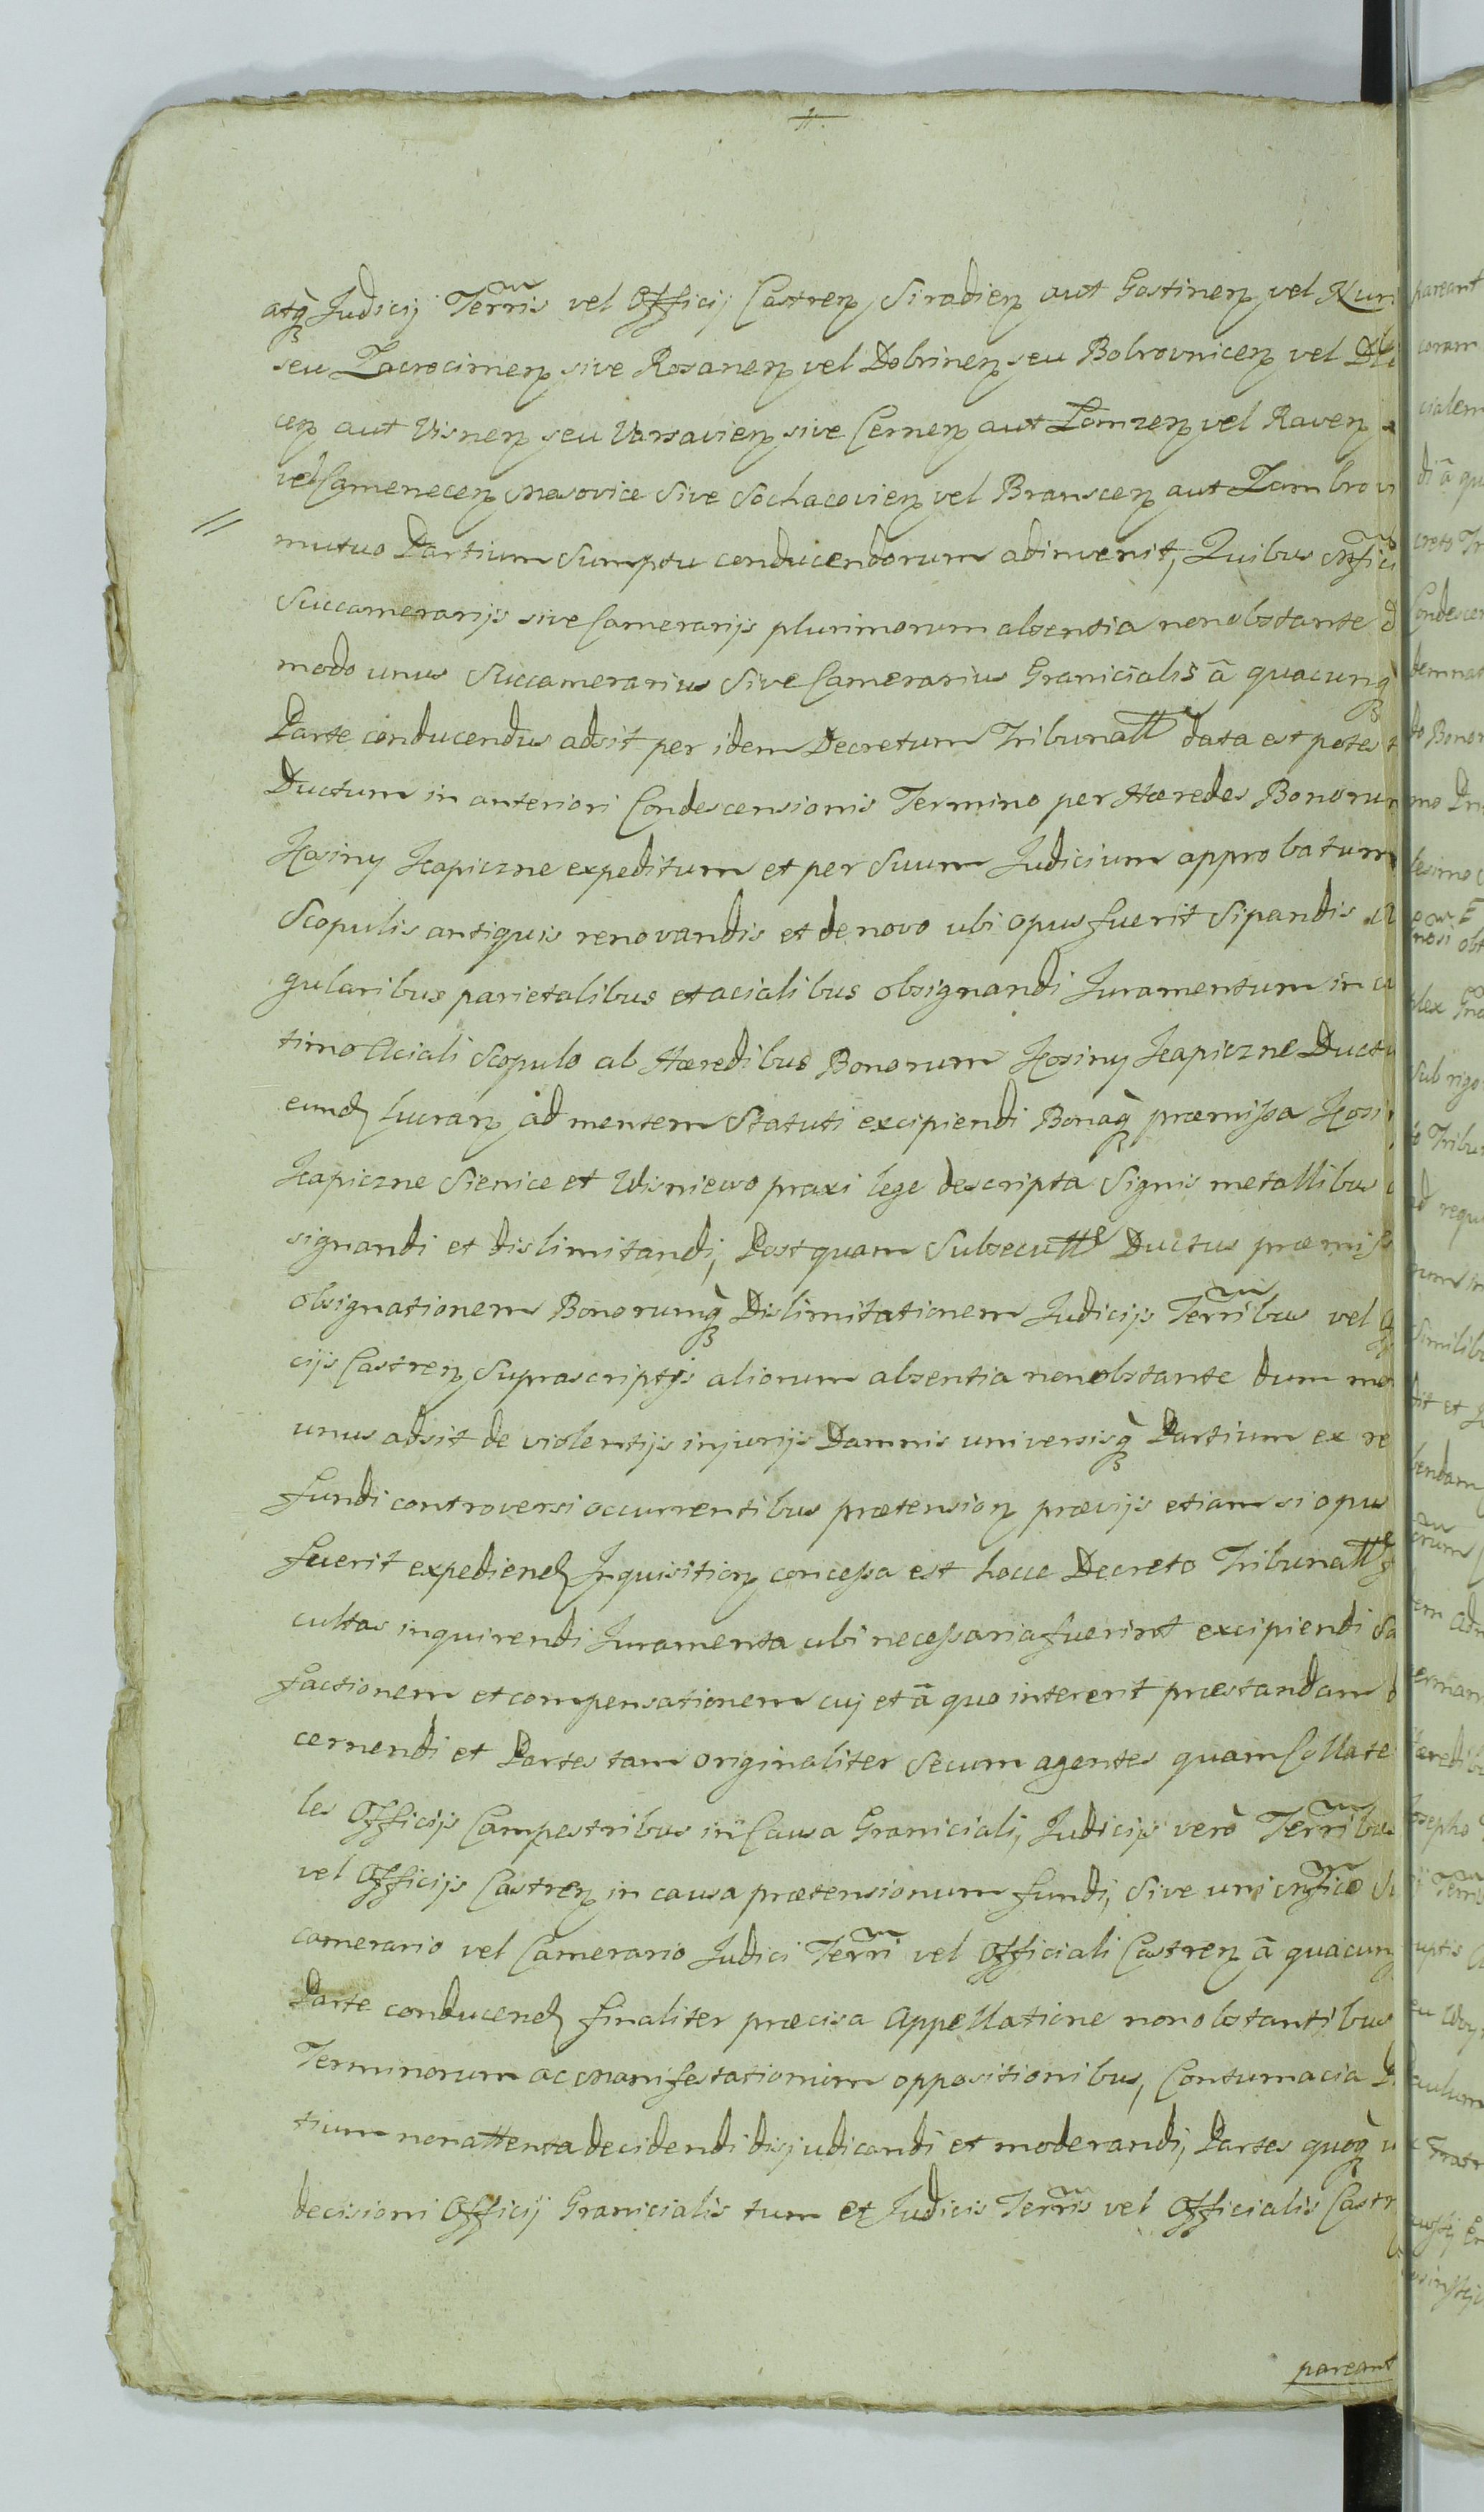 atqꝫ Judicij Terris vel Officij Castren, Siradien aut Gostinen vel
seu Zacrocimen sive Rosanen vel Dobrinen seu Bobrovnicen vel
cen aut Visnen seu Varsavien sive Cernen aut Lomzen vel Raven
vel Camenecen Masovice sive Sochacovien vel Branscen aut Zambrovi
mutuo Partium Sumptu conducendorum adinvenit, Quibus Mfici
Succamerarijs sive Camerarijs plurimorum absentia nonobstante d
modo unus Succamerarius Sive Camerarius Granicialis â quacunqꝫ
Parte conducendus adsit per idem Decretum Tribunall data est potest
Ductum in anteriori Condescensionis Termino per Hæredes Bonorum
Kosiny Kapiczne expeditum et per Suum Judicium approbatum
Scopulis antiquis renovandis et de novo ubi opus fuerit Sipandis
gularibus parietalibus et acialibus obsignandi Juramentum in
timo Aciali Scopulo ab Hæredibus Bonorum Kosiny Kapiczne Ductu
eund lucran ad mentem Statuti excipiendi Bonaqꝫ præmissa Kosi
Kapiczne Sienice et Wisniewo praxi lege descripta Signis metallibus
signandi et dislimitandi, Postquam Subsecutte Ductus præmiss
obsignationem Bonorumqꝫ Dislimitationem Judicijs Terribus vel
cijs Castren Suprascriptis aliorum absentia nonobstante dum mo
unus adsit de violentijs injurijs Damnis universisqꝫ Partium ex re
fundi controversi occurrentibus prætension prævijs etiam si opus
fuerit expediend Inquisition concessa est hocce Decreto Tribunalle f
cultas inquirendi Juramenta ubi necessaria fuerint excipiendi Sa
factionem et compensationem cuj et â quo intererit præstandam d
cernendi et Partes tam originaliter Secum agentes quam Collate
les Officijs Campestribus in Causa Graniciali, Judicijs verò Terribus
vel Officijs Castren in causa prætensionum fundi, Sive uni Mfico Su
camerario vel Camerario Judici Terri vel Officiali Castren â quacunq
Parte conducend finaliter præcisa Appellatione nonobstantibus
Terminorum ac Manifestationum oppositionibus, Contumacia P
tium non attenta decidendi disjudicandi et moderandi, Partes quoqꝫ
decisioni Officij Granicialis tum et Judicis Terris vel Officialis Castr
pareant